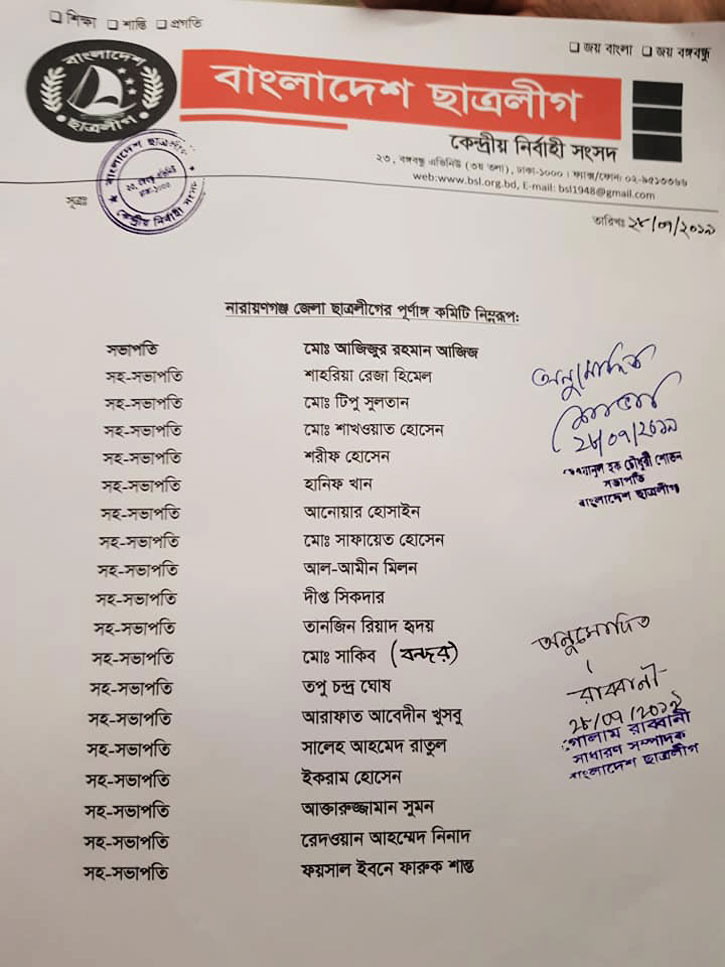 শিক্ষা শান্তি প্রগতি
জয় বাংলা জয় বঙ্গবন্ধু
বাংলাদেশ
ছাত্রলীগ
বাংলাদেশ ছাত্রলীগ
কেন্দ্রীয় নির্বাহী সংসদ
২৩, বঙ্গবন্ধু এভিনিউ (৩য় তলা), ঢাকা-১০০০। ফ্যাক্স/ফোন: ০২-৯৫১৩৩৬৬
web:www.bsl.org.bd, E-mail: bsl1948@gmail.com
বাংলাদেশ ছাত্রলীগ
ঢাকা-১০০০
কেন্দ্রীয় নির্বাহী সংসদ
সূত্রঃ
তারিখঃ ২৮/০৭/২০১৯
নারায়ণগঞ্জ জেলা ছাত্রলীগের পূর্ণাঙ্গ কমিটি নিম্নরূপঃ
সভাপতি মোঃ আজিজুর রহমান আজিজ
সহ-সভাপতি শাহরিয়া রেজা হিমেল
সহ-সভাপতি মোঃ টিপু সুলতান
সহ-সভাপতি মোঃ শাখওয়াত হোসেন
সহ-সভাপতি শরীফ হোসেন
সহ-সভাপতি হানিফ খান
সহ-সভাপতি আনোয়ার হোসাইন
সহ-সভাপতি মোঃ সাফায়েত হোসেন
সহ-সভাপতি আল-আমীন মিলন
সহ-সভাপতি দীপ্ত সিকদার
সহ-সভাপতি তানজিন রিয়াদ হৃদয়
সহ-সভাপতি মোঃ সাকিব (বন্দর)
সহ-সভাপতি তপু চন্দ্র ঘোষ
সহ-সভাপতি আরাফাত আবেদীন খুসবু
সহ-সভাপতি সালেহ আহমেদ রাতুল
সহ-সভাপতি ইকরাম হোসেন
সহ-সভাপতি আক্তারুজ্জামান সুমন
সহ-সভাপতি রেদওয়ান আহম্মেদ নিনাদ
সহ-সভাপতি ফয়সাল ইবনে ফারুক শান্ত
অনুমোদিত
২৮/০৭/২০১৯
হক চৌধুরী শোভন
সভাপতি
বাংলাদেশ ছাত্রলীগ
অনুমোদিত
রাব্বানী
২৮/০৭/২০১৯
গোলাম রাব্বানী
সাধারণ সম্পাদক
বাংলাদেশ ছাত্রলীগ